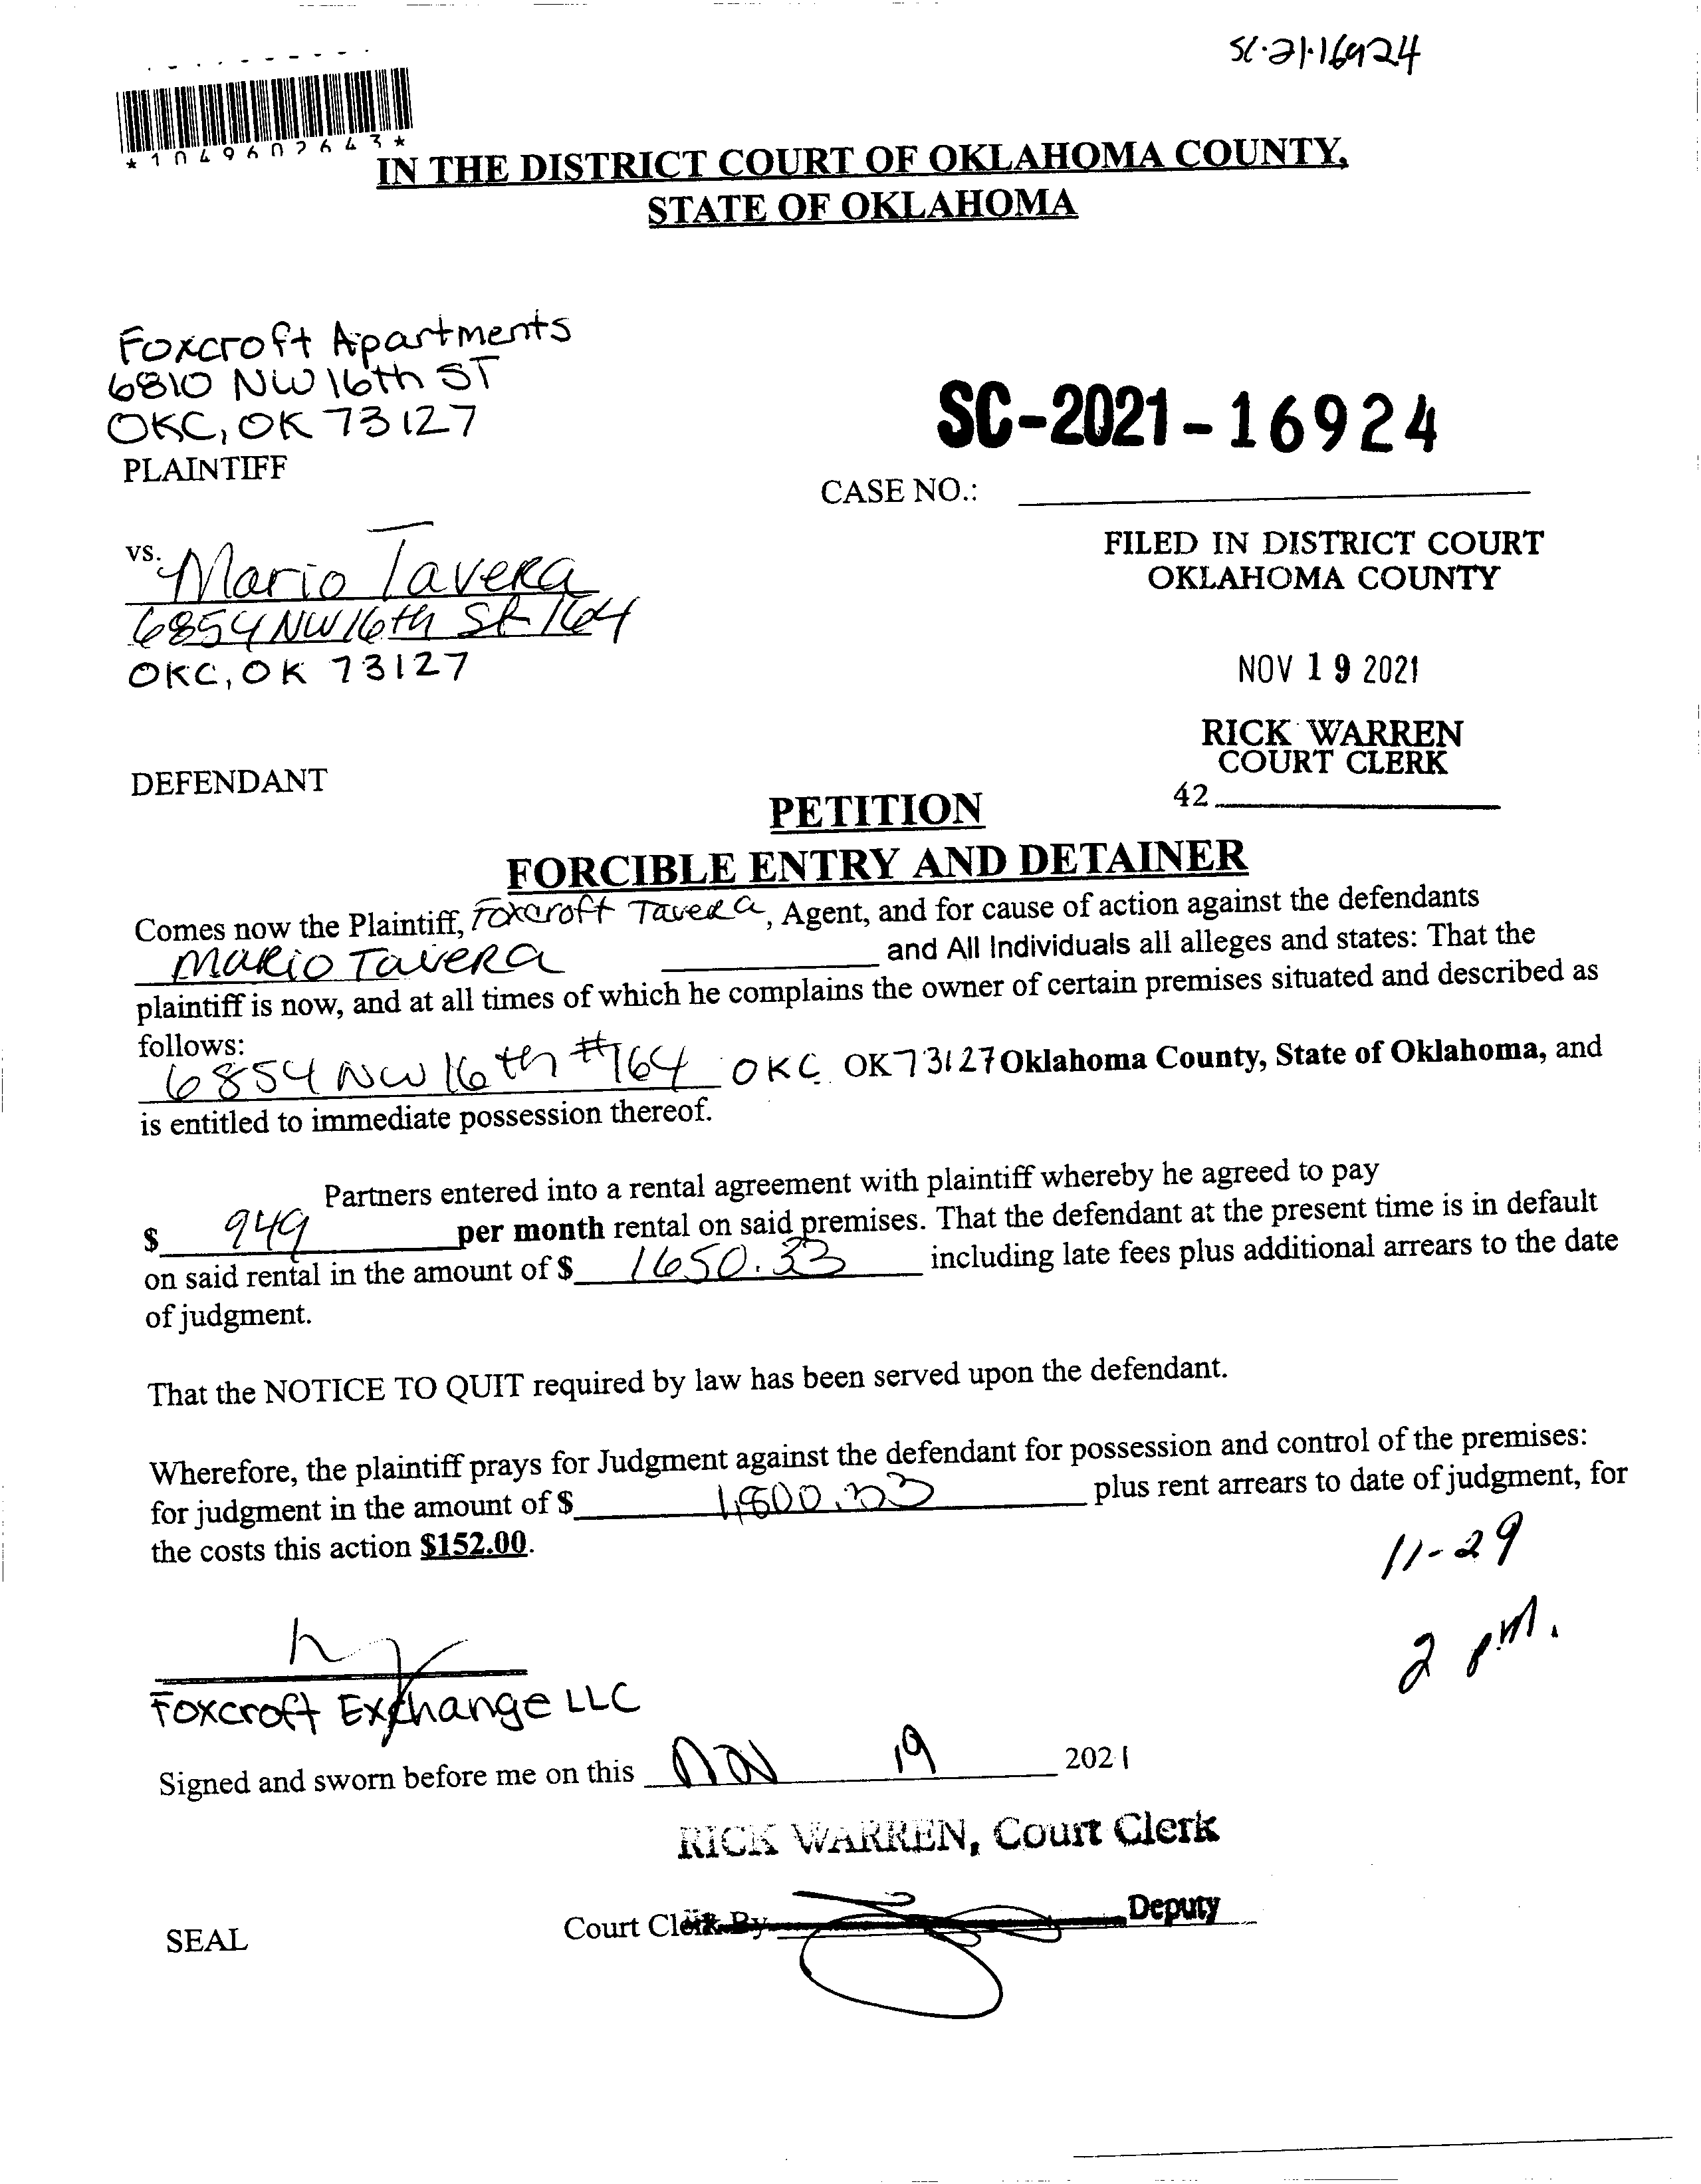 SC-21-16924
*1049602643*
IN THE DISTRICT COURT OF OKLAHOMA COUNTY,
STATE OF OKLAHOMA
Foxcroft Apartments
6810 NW 16th ST
OKC, OK 73127
PLAINTIFF
SC-2021-16924
CASE NO.:
vs. Mario Tavera
6854 NW 16th St 164
OKC, OK 73127
FILED IN DISTRICT COURT
OKLAHOMA COUNTY
NOV 19 2021
RICK WARREN
COURT CLERK
42
DEFENDANT
PETITION
FORCIBLE ENTRY AND DETAINER
Comes now the Plaintiff, Foxcroft Tavera, Agent, and for cause of action against the defendants
Mario Tavera and All Individuals all alleges and states: That the
plaintiff is now, and at all times of which he complains the owner of certain premises situated and described as
follows:
6854 NW 16th #164 OKC OK 73127 Oklahoma County, State of Oklahoma, and
is entitled to immediate possession thereof.
Partners entered into a rental agreement with plaintiff whereby he agreed to pay
$ 949 per month rental on said premises. That the defendant at the present time is in default
on said rental in the amount of $ 1650.33 including late fees plus additional arrears to the date
of judgment.
That the NOTICE TO QUIT required by law has been served upon the defendant.
Wherefore, the plaintiff prays for Judgment against the defendant for possession and control of the premises:
for judgment in the amount of $ plus rent arrears to date of judgment, for
the costs this action $152.00.
11-29
2 pm.
Foxcroft Exchange LLC
Signed and sworn before me on this Nov 19 2021
RICK WARREN, Court Clerk
Court Clerk By Deputy
SEAL